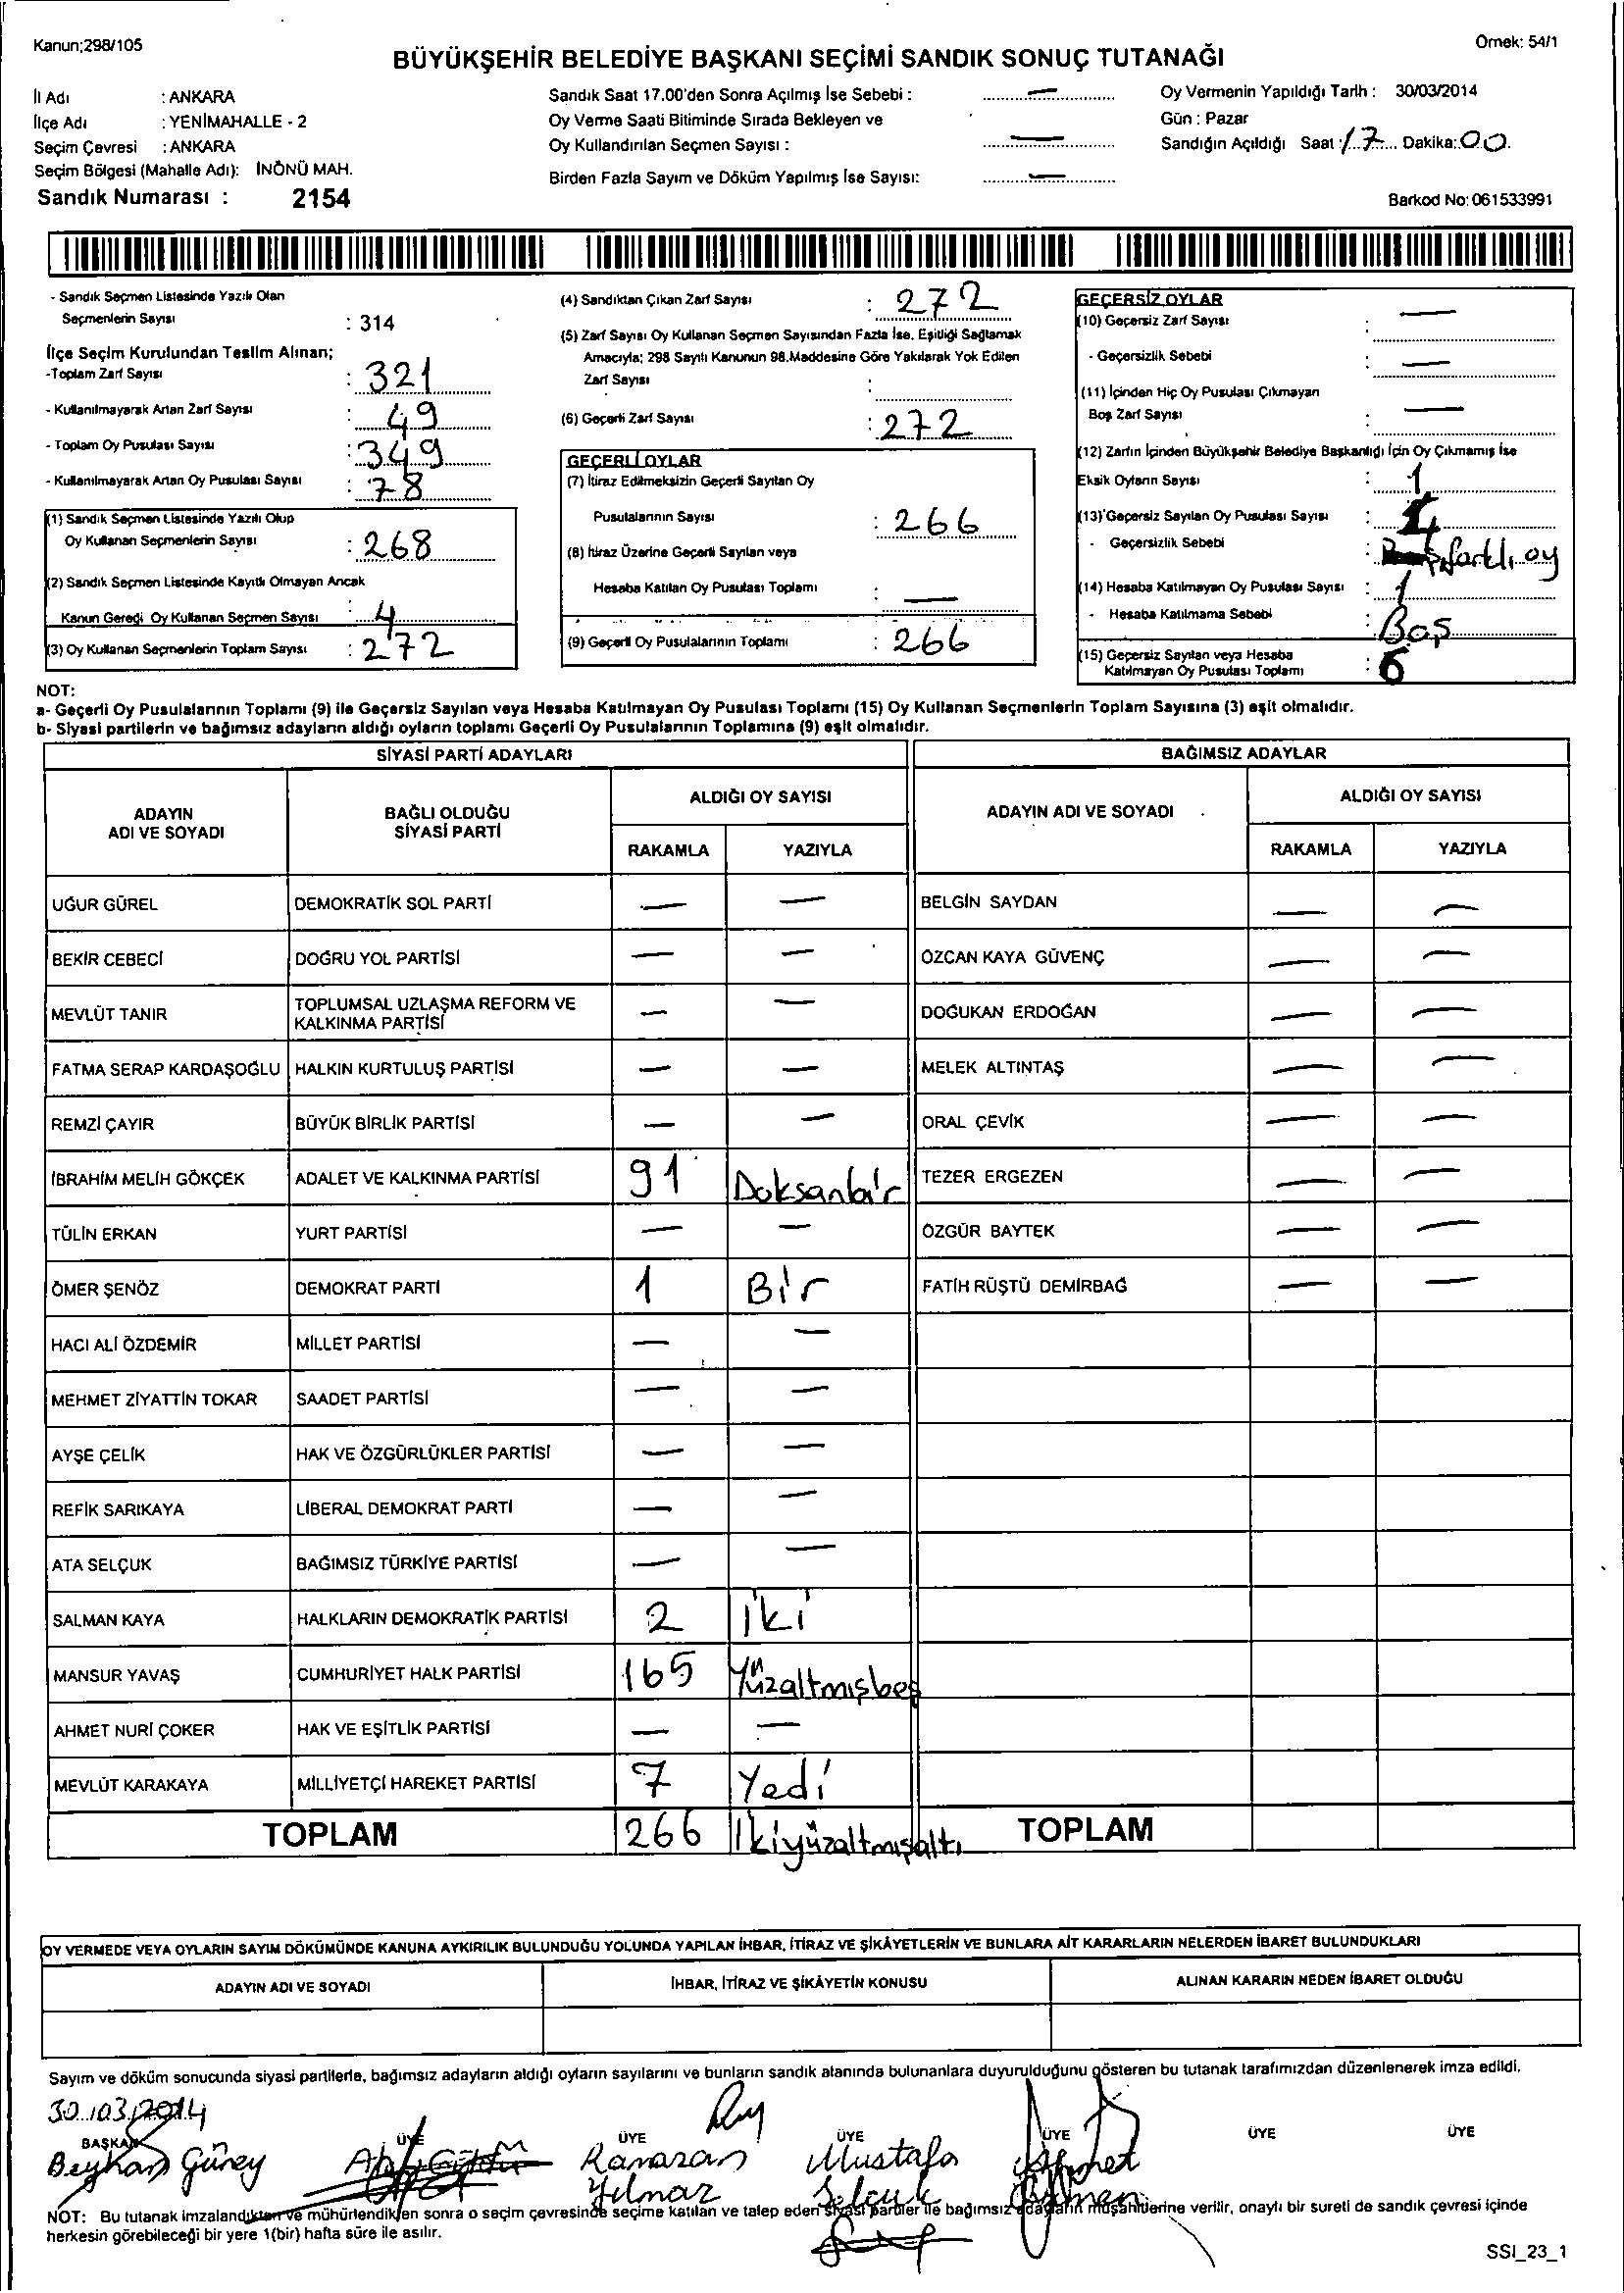 Kanun;298/105
Örnek: 54/1
BÜYÜKŞEHİR BELEDİYE BAŞKANI SEÇİMİ SANDIK SONUÇ TUTANAĞI
İl Adı : ANKARA
İlçe Adı : YENİMAHALLE - 2
Seçim Çevresi : ANKARA
Seçim Bölgesi (Mahalle Adı): İNÖNÜ MAH.
Sandık Numarası : 2154
Sandık Saat 17.00'den Sonra Açılmış İse Sebebi : —
Oy Verme Saati Bitiminde Sırada Bekleyen ve
Oy Kullandırılan Seçmen Sayısı : —
Birden Fazla Sayım ve Döküm Yapılmış İse Sayısı: —
Oy Vermenin Yapıldığı Tarih : 30/03/2014
Gün : Pazar
Sandığın Açıldığı Saat : 17 Dakika: 00
Barkod No: 061533991
- Sandık Seçmen Listesinde Yazılı Olan
Seçmenlerin Sayısı : 314
İlçe Seçim Kurulundan Teslim Alınan;
-Toplam Zarf Sayısı : 321
- Kullanılmayarak Artan Zarf Sayısı : 49
- Toplam Oy Pusulası Sayısı : 349
- Kullanılmayarak Artan Oy Pusulası Sayısı : 78
(1) Sandık Seçmen Listesinde Yazılı Olup
Oy Kullanan Seçmenlerin Sayısı : 268
(2) Sandık Seçmen Listesinde Kayıtlı Olmayan Ancak
Kanun Gereği Oy Kullanan Seçmen Sayısı : 4
(3) Oy Kullanan Seçmenlerin Toplam Sayısı : 272
(4) Sandıktan Çıkan Zarf Sayısı : 272
(5) Zarf Sayısı Oy Kullanan Seçmen Sayısından Fazla İse, Eşitliği Sağlamak
Amacıyla; 298 Sayılı Kanunun 98.Maddesine Göre Yakılarak Yok Edilen
Zarf Sayısı :
(6) Geçerli Zarf Sayısı : 272
GEÇERLİ OYLAR
(7) İtiraz Edilmeksizin Geçerli Sayılan Oy
Pusulalarının Sayısı : 266
(8) İtiraz Üzerine Geçerli Sayılan veya
Hesaba Katılan Oy Pusulası Toplamı : —
(9) Geçerli Oy Pusulalarının Toplamı : 266
GEÇERSİZ OYLAR
(10) Geçersiz Zarf Sayısı : —
- Geçersizlik Sebebi : —
(11) İçinden Hiç Oy Pusulası Çıkmayan
Boş Zarf Sayısı : —
(12) Zarfın İçinden Büyükşehir Belediye Başkanlığı İçin Oy Çıkmamış İse
Eksik Oyların Sayısı : 1
(13) Geçersiz Sayılan Oy Pusulası Sayısı :
- Geçersizlik Sebebi : farklı oy
(14) Hesaba Katılmayan Oy Pusulası Sayısı : 1
- Hesaba Katılmama Sebebi : Boş
(15) Geçersiz Sayılan veya Hesaba
Katılmayan Oy Pusulası Toplamı : 6
NOT:
a- Geçerli Oy Pusulalarının Toplamı (9) ile Geçersiz Sayılan veya Hesaba Katılmayan Oy Pusulası Toplamı (15) Oy Kullanan Seçmenlerin Toplam Sayısına (3) eşit olmalıdır.
b- Siyasi partilerin ve bağımsız adayların aldığı oyların toplamı Geçerli Oy Pusulalarının Toplamına (9) eşit olmalıdır.
SİYASİ PARTİ ADAYLARI
BAĞIMSIZ ADAYLAR
ADAYIN ADI VE SOYADI
BAĞLI OLDUĞU SİYASİ PARTİ
ALDIĞI OY SAYISI
RAKAMLA YAZIYLA
ADAYIN ADI VE SOYADI
ALDIĞI OY SAYISI
RAKAMLA YAZIYLA
UĞUR GÜREL DEMOKRATİK SOL PARTİ — — BELGİN SAYDAN — —
BEKİR CEBECİ DOĞRU YOL PARTİSİ — — ÖZCAN KAYA GÜVENÇ — —
MEVLÜT TANIR TOPLUMSAL UZLAŞMA REFORM VE KALKINMA PARTİSİ — — DOĞUKAN ERDOĞAN — —
FATMA SERAP KARDAŞOĞLU HALKIN KURTULUŞ PARTİSİ — — MELEK ALTINTAŞ — —
REMZİ ÇAYIR BÜYÜK BİRLİK PARTİSİ — — ORAL ÇEVİK — —
İBRAHİM MELİH GÖKÇEK ADALET VE KALKINMA PARTİSİ 91 Doksanbir TEZER ERGEZEN — —
TÜLİN ERKAN YURT PARTİSİ — — ÖZGÜR BAYTEK — —
ÖMER ŞENÖZ DEMOKRAT PARTİ 1 Bir FATİH RÜŞTÜ DEMİRBAĞ — —
HACI ALİ ÖZDEMİR MİLLET PARTİSİ — —
MEHMET ZİYATTİN TOKAR SAADET PARTİSİ — —
AYŞE ÇELİK HAK VE ÖZGÜRLÜKLER PARTİSİ — —
REFİK SARIKAYA LİBERAL DEMOKRAT PARTİ — —
ATA SELÇUK BAĞIMSIZ TÜRKİYE PARTİSİ — —
SALMAN KAYA HALKLARIN DEMOKRATİK PARTİSİ 2 İki
MANSUR YAVAŞ CUMHURİYET HALK PARTİSİ 165 Yüzaltmışbeş
AHMET NURİ ÇOKER HAK VE EŞİTLİK PARTİSİ — —
MEVLÜT KARAKAYA MİLLİYETÇİ HAREKET PARTİSİ 7 Yedi
TOPLAM 266 İkiyüzaltmışaltı TOPLAM
OY VERMEDE VEYA OYLARIN SAYIM DÖKÜMÜNDE KANUNA AYKIRILIK BULUNDUĞU YOLUNDA YAPILAN İHBAR, İTİRAZ VE ŞİKÂYETLERİN VE BUNLARA AİT KARARLARIN NELERDEN İBARET BULUNDUKLARI
ADAYIN ADI VE SOYADI İHBAR, İTİRAZ VE ŞİKÂYETİN KONUSU ALINAN KARARIN NEDEN İBARET OLDUĞU
Sayım ve döküm sonucunda siyasi partilerle, bağımsız adayların aldığı oyların sayılarını ve bunların sandık alanında bulunanlara duyurulduğunu gösteren bu tutanak tarafımızdan düzenlenerek imza edildi.
30.03.2014
BAŞKAN ÜYE ÜYE ÜYE ÜYE ÜYE ÜYE
Beyhan Güney Ramazan Yılmaz Mustafa Selçuk
NOT: Bu tutanak imzalandıktan ve mühürlendikten sonra o seçim çevresinde seçime katılan ve talep eden siyasi partiler ile bağımsız adayların müşahitlerine verilir, onaylı bir sureti de sandık çevresi içinde
herkesin görebileceği bir yere 1(bir) hafta süre ile asılır.
SSI_23_1